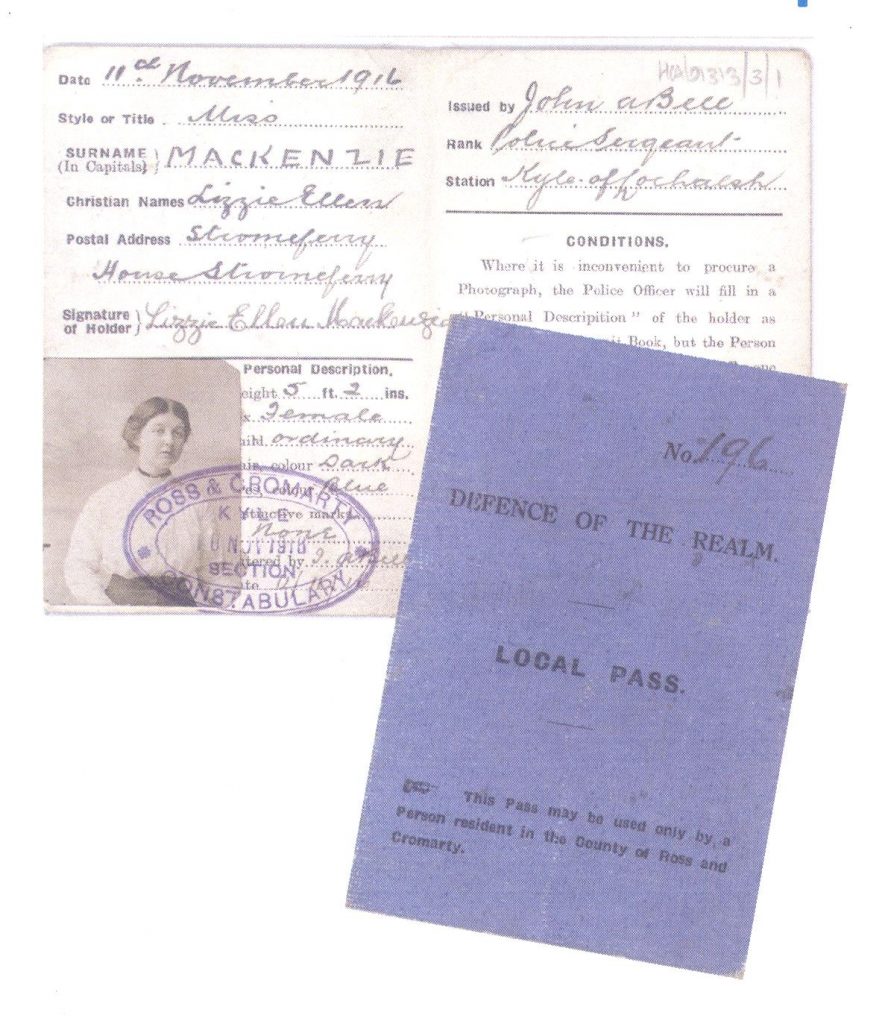 HCA/D313/3/1
Date 11th November 1916
Style or Title Miss
SURNAME (In Capitals) MACKENZIE
Christian Names Lizzie Ellen
Postal Address Stromeferry
House Stromeferry
Signature of Holder Lizzie Ellen Mackenzie
Personal Description.
eight 5 ft. 2 ins.
x Female
uild ordinary
air, colour Dark
es, colour Blue
tinctive marks
None
tered by J. A Bell
ROSS & CROMARTY
KYLE
NOV 1916
SECTION
CONSTABULARY
Issued by John A Bell
Rank Police Sergeant
Station Kyle of Lochalsh
CONDITIONS.
Where it is inconvenient to procure a
Photograph, the Police Officer will fill in a
"Personal Descripition" of the holder as
it Book, but the Person
one
No. 196
DEFENCE OF THE REALM.
LOCAL PASS.
This Pass may be used only by a
Person resident in the County of Ross and
Cromarty.